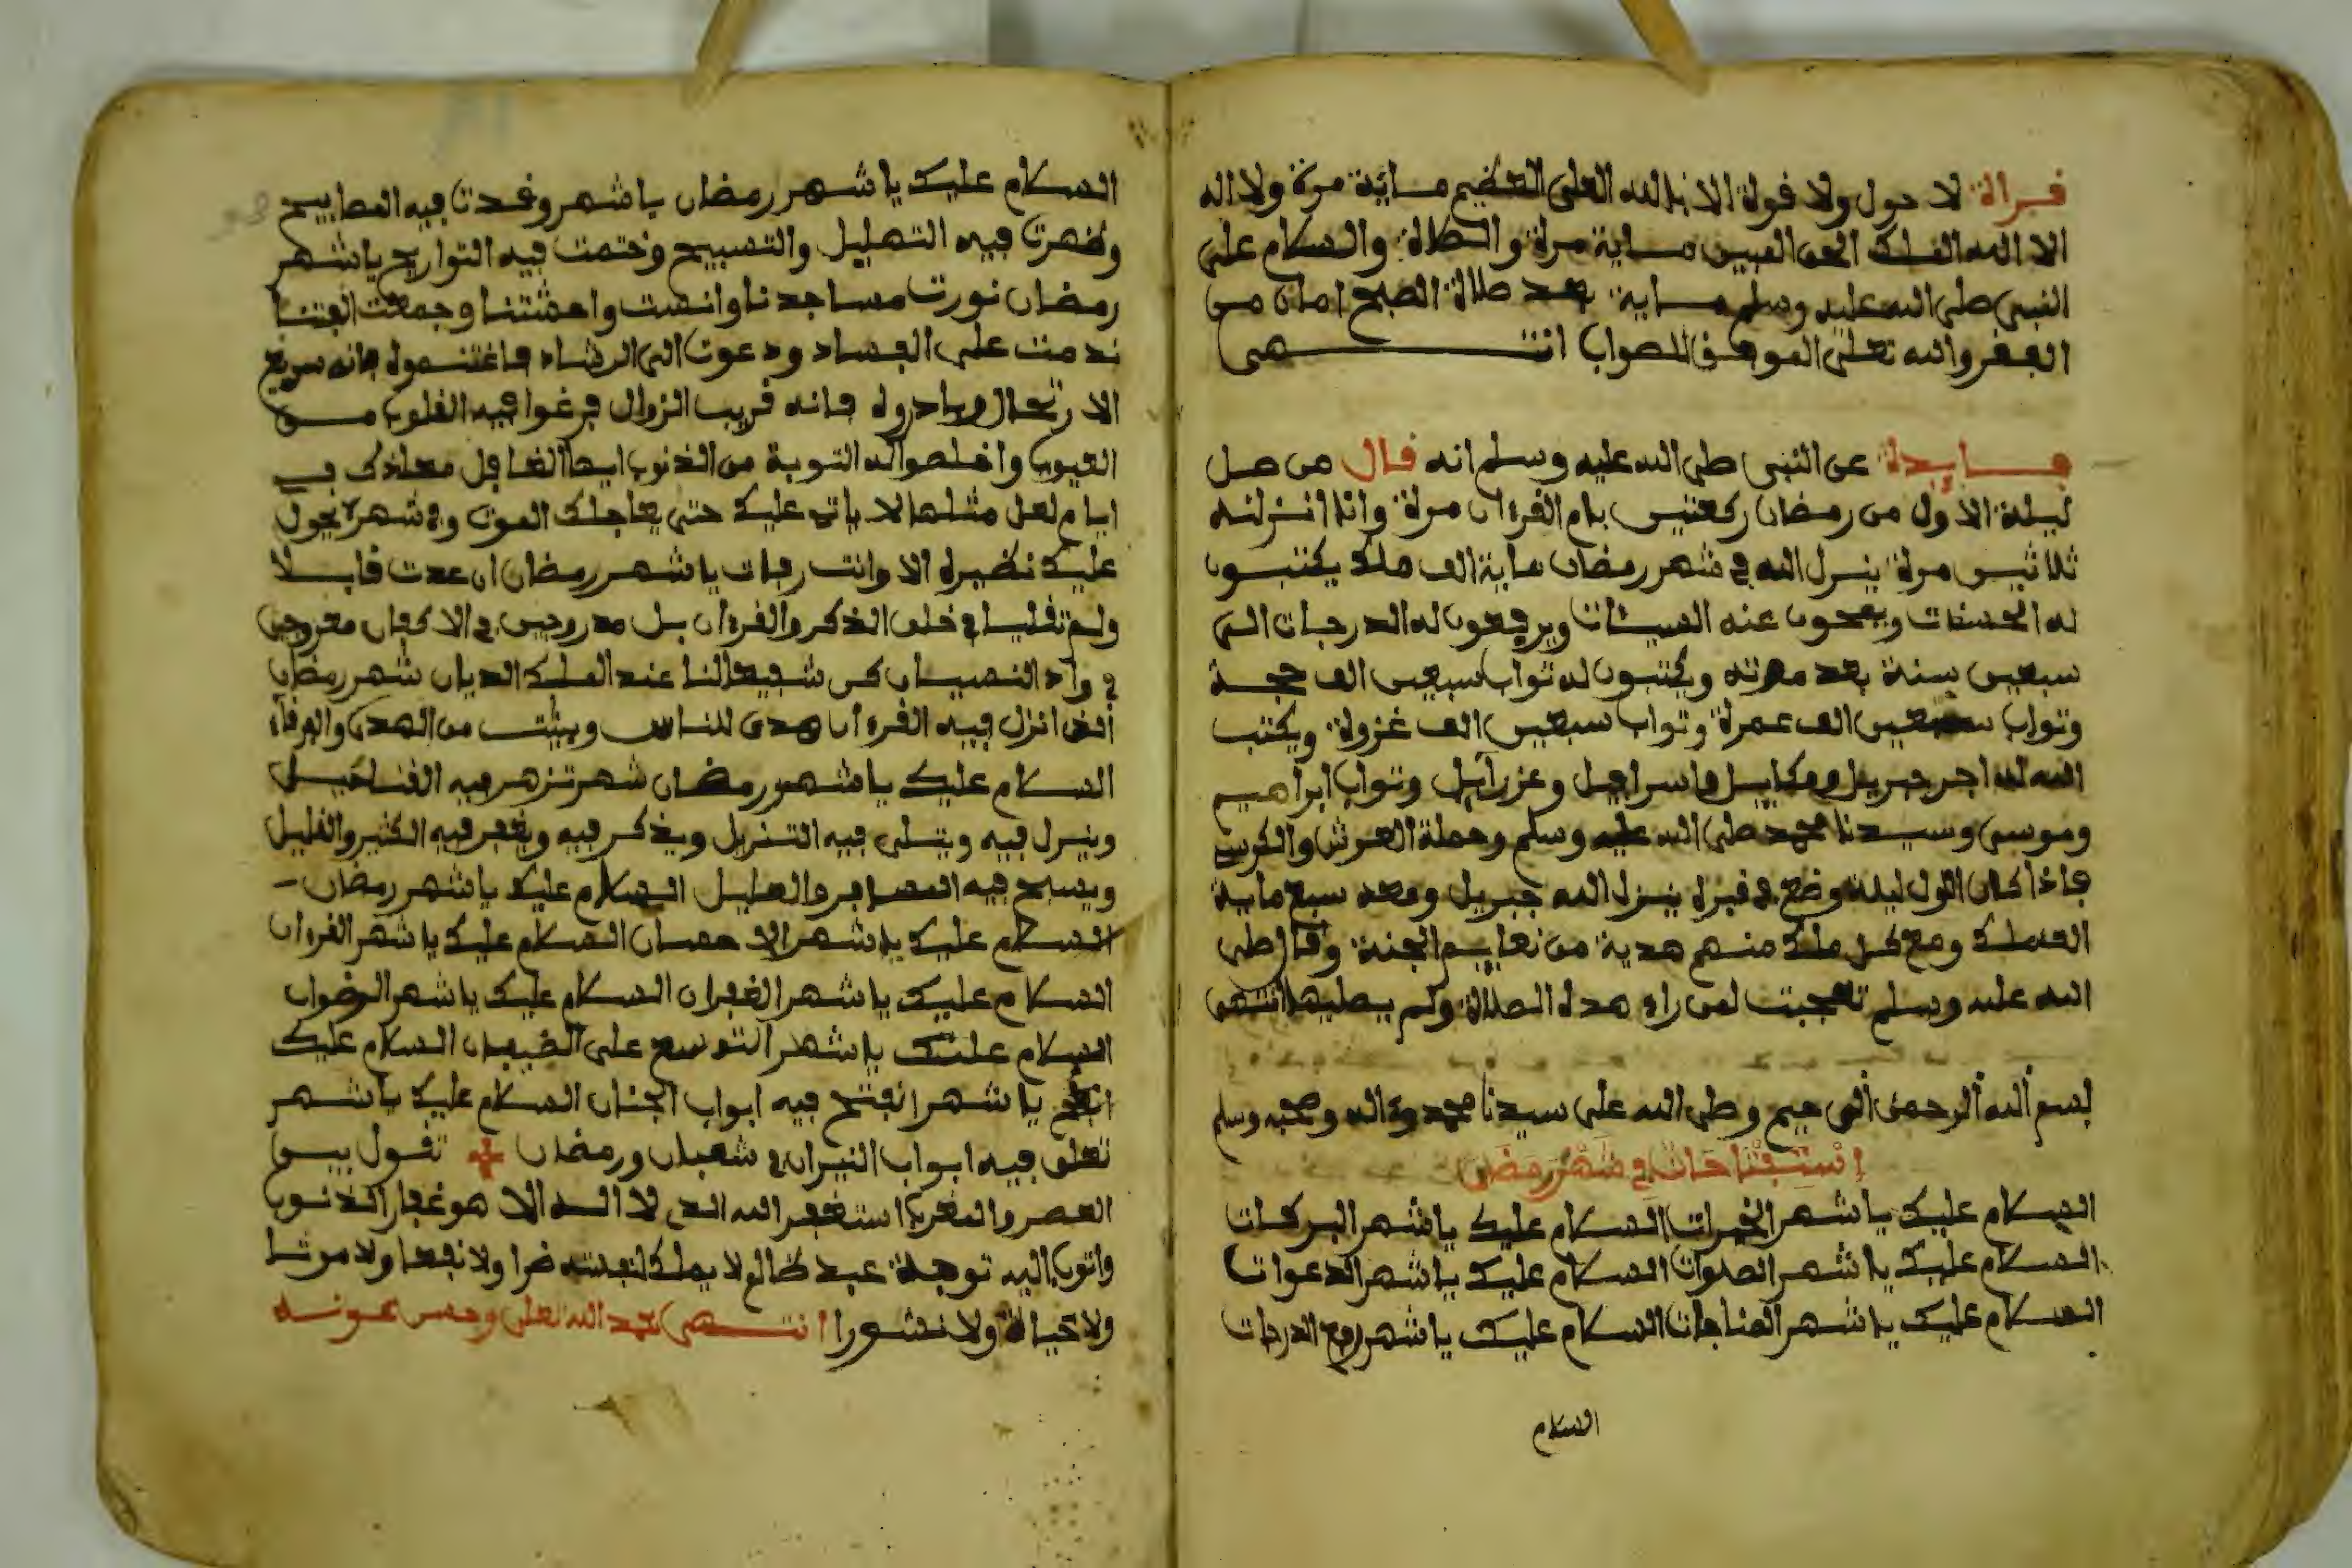 قراة لا حول ولا قوة الا بالله العلى العضيم ماية مرة ولا اله
الا الله الملك الحق المبين ماية مرة والصلاة والسلام على
النبي صلى الله عليه وسلم ماية بعد صلاة الصبح امان من
الفقر والله تعلى الموفق للصواب انتهى
فايدة عن النبي صلى الله عليه وسلم انه قال من صل
ليلة الاول من رمضان ركعتين بام القرءان مرة وانا انزلنه
ثلاثين مرة ينزل الله في شهر رمضان ماية الف ملك يكتبون
له الحسنات ويمحون عنه السيئات ويرفعون له الدرجات الى
سبعين سنة بعد موته ويكتبون له تواب سبعين الف حجة
وتواب سبعين الف عمرة وتواب سبعين الف غزوة ويكتب
الله له اجر جبريل وميكاييل واسرافيل وعزرآيل وتواب ابراهيم
وموسى وسيدنا محمد صلى الله عليه وسلم وحملة العرش والكرسي
فاذا كان اول ليلة وضع في قبره ينزل الله جبريل ومعه سبع ماية
الف ملك ومع كل ملك منهم هدية من نعايم الجنة وقال صلى
الله عليه وسلم تعجبت لمن راء هده الصلاة ولم يصليها انتهى
بسم الله الرحمن الرحيم وصلى الله على سيدنا محمد وءاله وصحبه وسلم
استفتاحات في شهر رمضان
السلام عليك يا شهر الخيرات السلام عليك يا شهر البركات
السلام عليك يا شهر الصلوات السلام عليك يا شهر الدعوات
السلام عليك يا شهر المناجات السلام عليك يا شهر رفع الدرجات
السلام
السلام عليك يا شهر رمضان يا شهر وقدت فيه المصابيح
وضهرت فيه التهليل والتسبيح وختمت فيه التواريح يا شهر
رمضان نورت مساجدنا وانست وجمعت
ندمت على الفساد ودعوت الى الرشاد فاغتنموه فانه سريع
الارتحال وبادروه فانه قريب الزوال فرغوا فيه القلوب من
العيوب واخلصوا له التوبة من الذنوب ايها الغافل معك في
ايام لعل مثلها لا ياتي عليك حتى يعاجلك الموت و شهر لا يحول
عليك نضيره الا وانت رفات يا شهر رمضان ان عدت قابلا
ولم تقلينا في خلق الذكر والقرءان بل مدروجين في الاكفان
في واد النسيان كن شفيعا لنا عند الملك الديان شهر رمضان
الذي انزل فيه القرءان هدى للناس وبينت من الهدى والفرقان
السلام عليك يا شهر رمضان شهر تزهر فيه القناديل
وينزل فيه ويتلى فيه التنزيل ويذكر فيه ويغفر فيه الكثير والقليل
ويسبح فيه المسافر والعليل السلام عليك يا شهر رمضان
السلام عليك يا شهر الاحسان السلام عليك يا شهر القرءان
السلام عليك يا شهر الغفران السلام عليك يا شهر الرضوان
السلام عليك يا شهر التوسع على الضيفان السلام عليك
يا شهرا تفتح فيه ابواب الجنان السلام عليك يا شهر
تغلق فيه ابواب النيران في شعبان ورمضان تقول بين
العصر والمغرب استغفر الله الدى لا اله الا هو غفار الذنوب
واتوب اليه توبة عبد ظالم لا يملك لنفسه ضرا ولا نفعا ولا موتا
ولا حياة ولا نشورا انتهى بحمد الله تعلى وحسن عونه